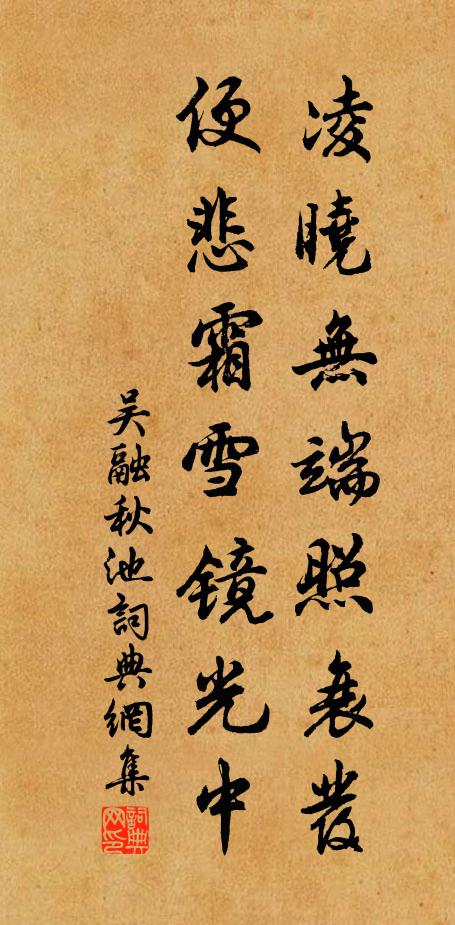 凌曉無端照衰發
便悲霜雪镜光中
吴融秋池詞典網集
詞典网印